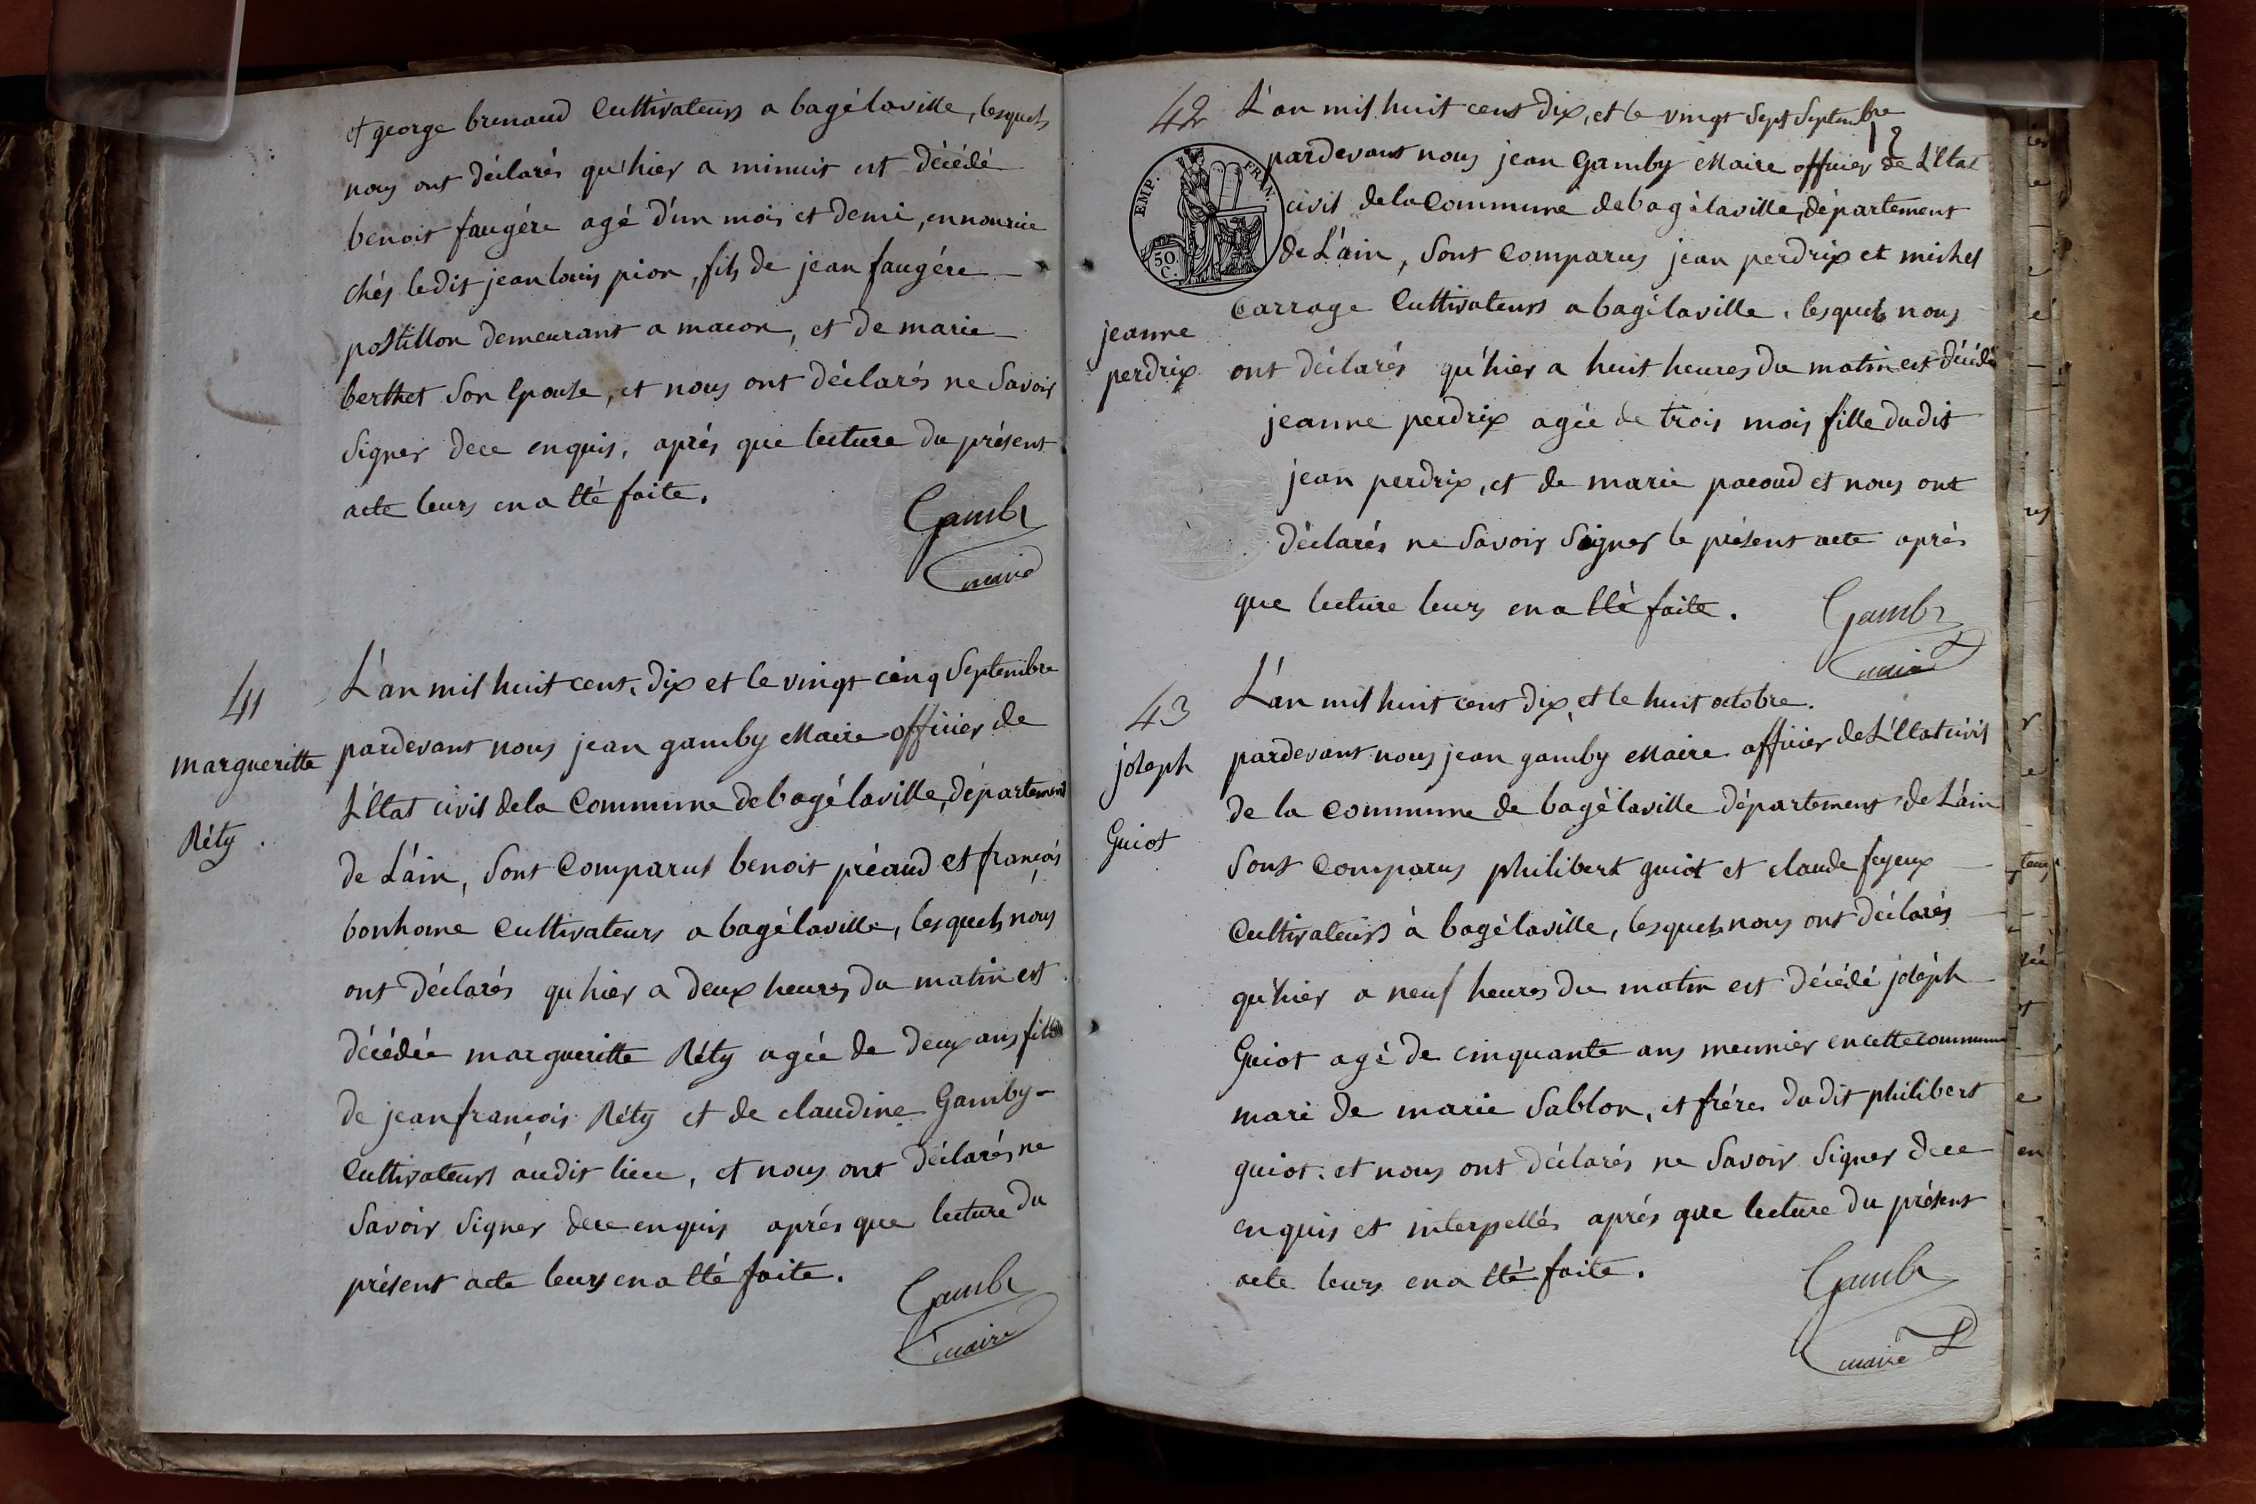 et george brenaud Cultivateurs a bagélaville, lesquels
nous ont déclarés qu'hier a minuit est décédé
benoit faugére agé d'un mois et demi, en nourice
chés ledit jean louis pion, fils de jean faugére
postillon demeurant a macon, et de marie
berthet Son Epouse, et nous ont déclarés ne Savoir
Signer dece enquis, aprés que lecture du présent
acte leurs en a été faite.
Gamby
maire
41
margueritte
Réty.
L'an mil huit cent, dix et le vingt cinq Septembre
pardevant nous jean gamby Maire officier de
L'Etat civil dela Commune debagélaville, département
de L'ain, Sont Comparus benoit préaud et françois
bonhome Cultivateurs a bagélaville, lesquels nous
ont déclarés qu'hier a deux heures du matin est
décédée margueritte Réty agée de deux ans fille
de jean françois Réty et de claudine Gamby
Cultivateurs audit lieu, et nous ont déclarés ne
Savoir Signer dece enquis aprés que lecture du
présent acte leurs en a été faite.
Gamby
maire
42
EMP. FRAN.
50.
C.
jeanne
perdrix
L'an mil huit cent dix, et le vingt Sept Septembre
pardevant nous jean Gamby Maire officier de L'Etat
civil dela Commune debagélaville, département
de L'ain, Sont Comparus jean perdrix et michel
Carrage Cultivateurs a bagélaville, lesquels nous
ont déclarés qu'hier a huit heures du matin est décédé
jeanne perdrix agée de trois mois fille dudit
jean perdrix, et de marie pacoud et nous ont
déclarés ne Savoir Signer le présent acte aprés
que lecture leurs en a été faite.
Gamby
maire
43
joseph
Guiot
L'an mil huit cent dix, et le huit octobre.
pardevant nous jean gamby Maire officier de L'Etat civil
de la commune de bagélaville département de L'ain
Sont Comparus philibert guiot et claude feyeux
Cultivateurs à bagélaville, lesquels nous ont déclarés
qu'hier a neuf heures du matin est décédé joséph
Guiot agé de cinquante ans meunier en cette commune
mari de marie Sablon, et frére dudit philibert
guiot. et nous ont déclarés ne Savoir Signer dece
enquis et interpellés aprés que lecture du présent
acte leurs en a été faite.
Gamby
maire